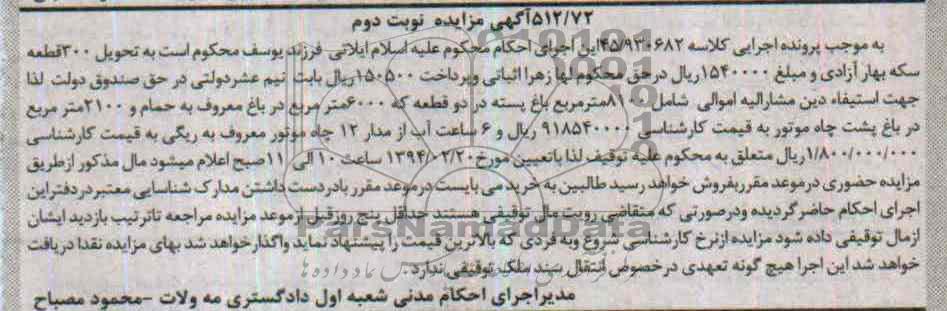 ۵۱۲/۷۲آگهی مزایده نوبت دوم
به موجب پرونده اجرایی کلاسه ۴۵/۹۳۰۶۸۲این اجرای احکام محکوم علیه اسلام ایلاتی فرزند یوسف محکوم است به تحویل ۳۰۰قطعه
سکه بهار آزادی و مبلغ ۱۵۴۰۰۰۰ریال درحق محکوم لها زهرا اثباتی وپرداخت ۱۵۰۵۰۰ریال بابت نیم عشردولتی در حق صندوق دولت لذا
جهت استیفاء دین مشارالیه اموالی شامل ۸۱۰۰مترمربع باغ پسته در دو قطعه که ۶۰۰۰متر مربع در باغ معروف به حمام و ۲۱۰۰متر مربع
در باغ پشت چاه موتور به قیمت کارشناسی ۹۱۸۵۴۰۰۰۰ ریال و ۶ ساعت آب از مدار ۱۲ چاه موتور معروف به ریگی به قیمت کارشناسی
۱/۸۰۰/۰۰۰/۰۰۰ریال متعلق به محکوم علیه توقیف لذا باتعیین مورخ۱۳۹۴/۰۲/۲۰ ساعت ۱۰ الی ۱۱صبح اعلام میشود مال مذکور ازطریق
مزایده حضوری درموعد مقرربفروش خواهد رسید طالبین به خرید می بایست درموعد مقرر بادردست داشتن مدارک شناسایی معتبردردفتراین
اجرای احکام حاضر گردیده ودرصورتی که متقاضی رویت مال توقیفی هستند حداقل پنج روزقبل ازموعد مزایده مراجعه تاترتیب بازدید ایشان
ازمال توقیفی داده شود مزایده ازنرخ کارشناسی شروع وبه فردی که بالاترین قیمت را پیشنهاد نماید واگذارخواهد شد بهای مزایده نقدا دریافت
خواهد شد این اجرا هیچ گونه تعهدی درخصوص انتقال سند ملک توقیفی ندارد
مدیراجرای احکام مدنی شعبه اول دادگستری مه ولات -محمود مصباح
ParsNamadData